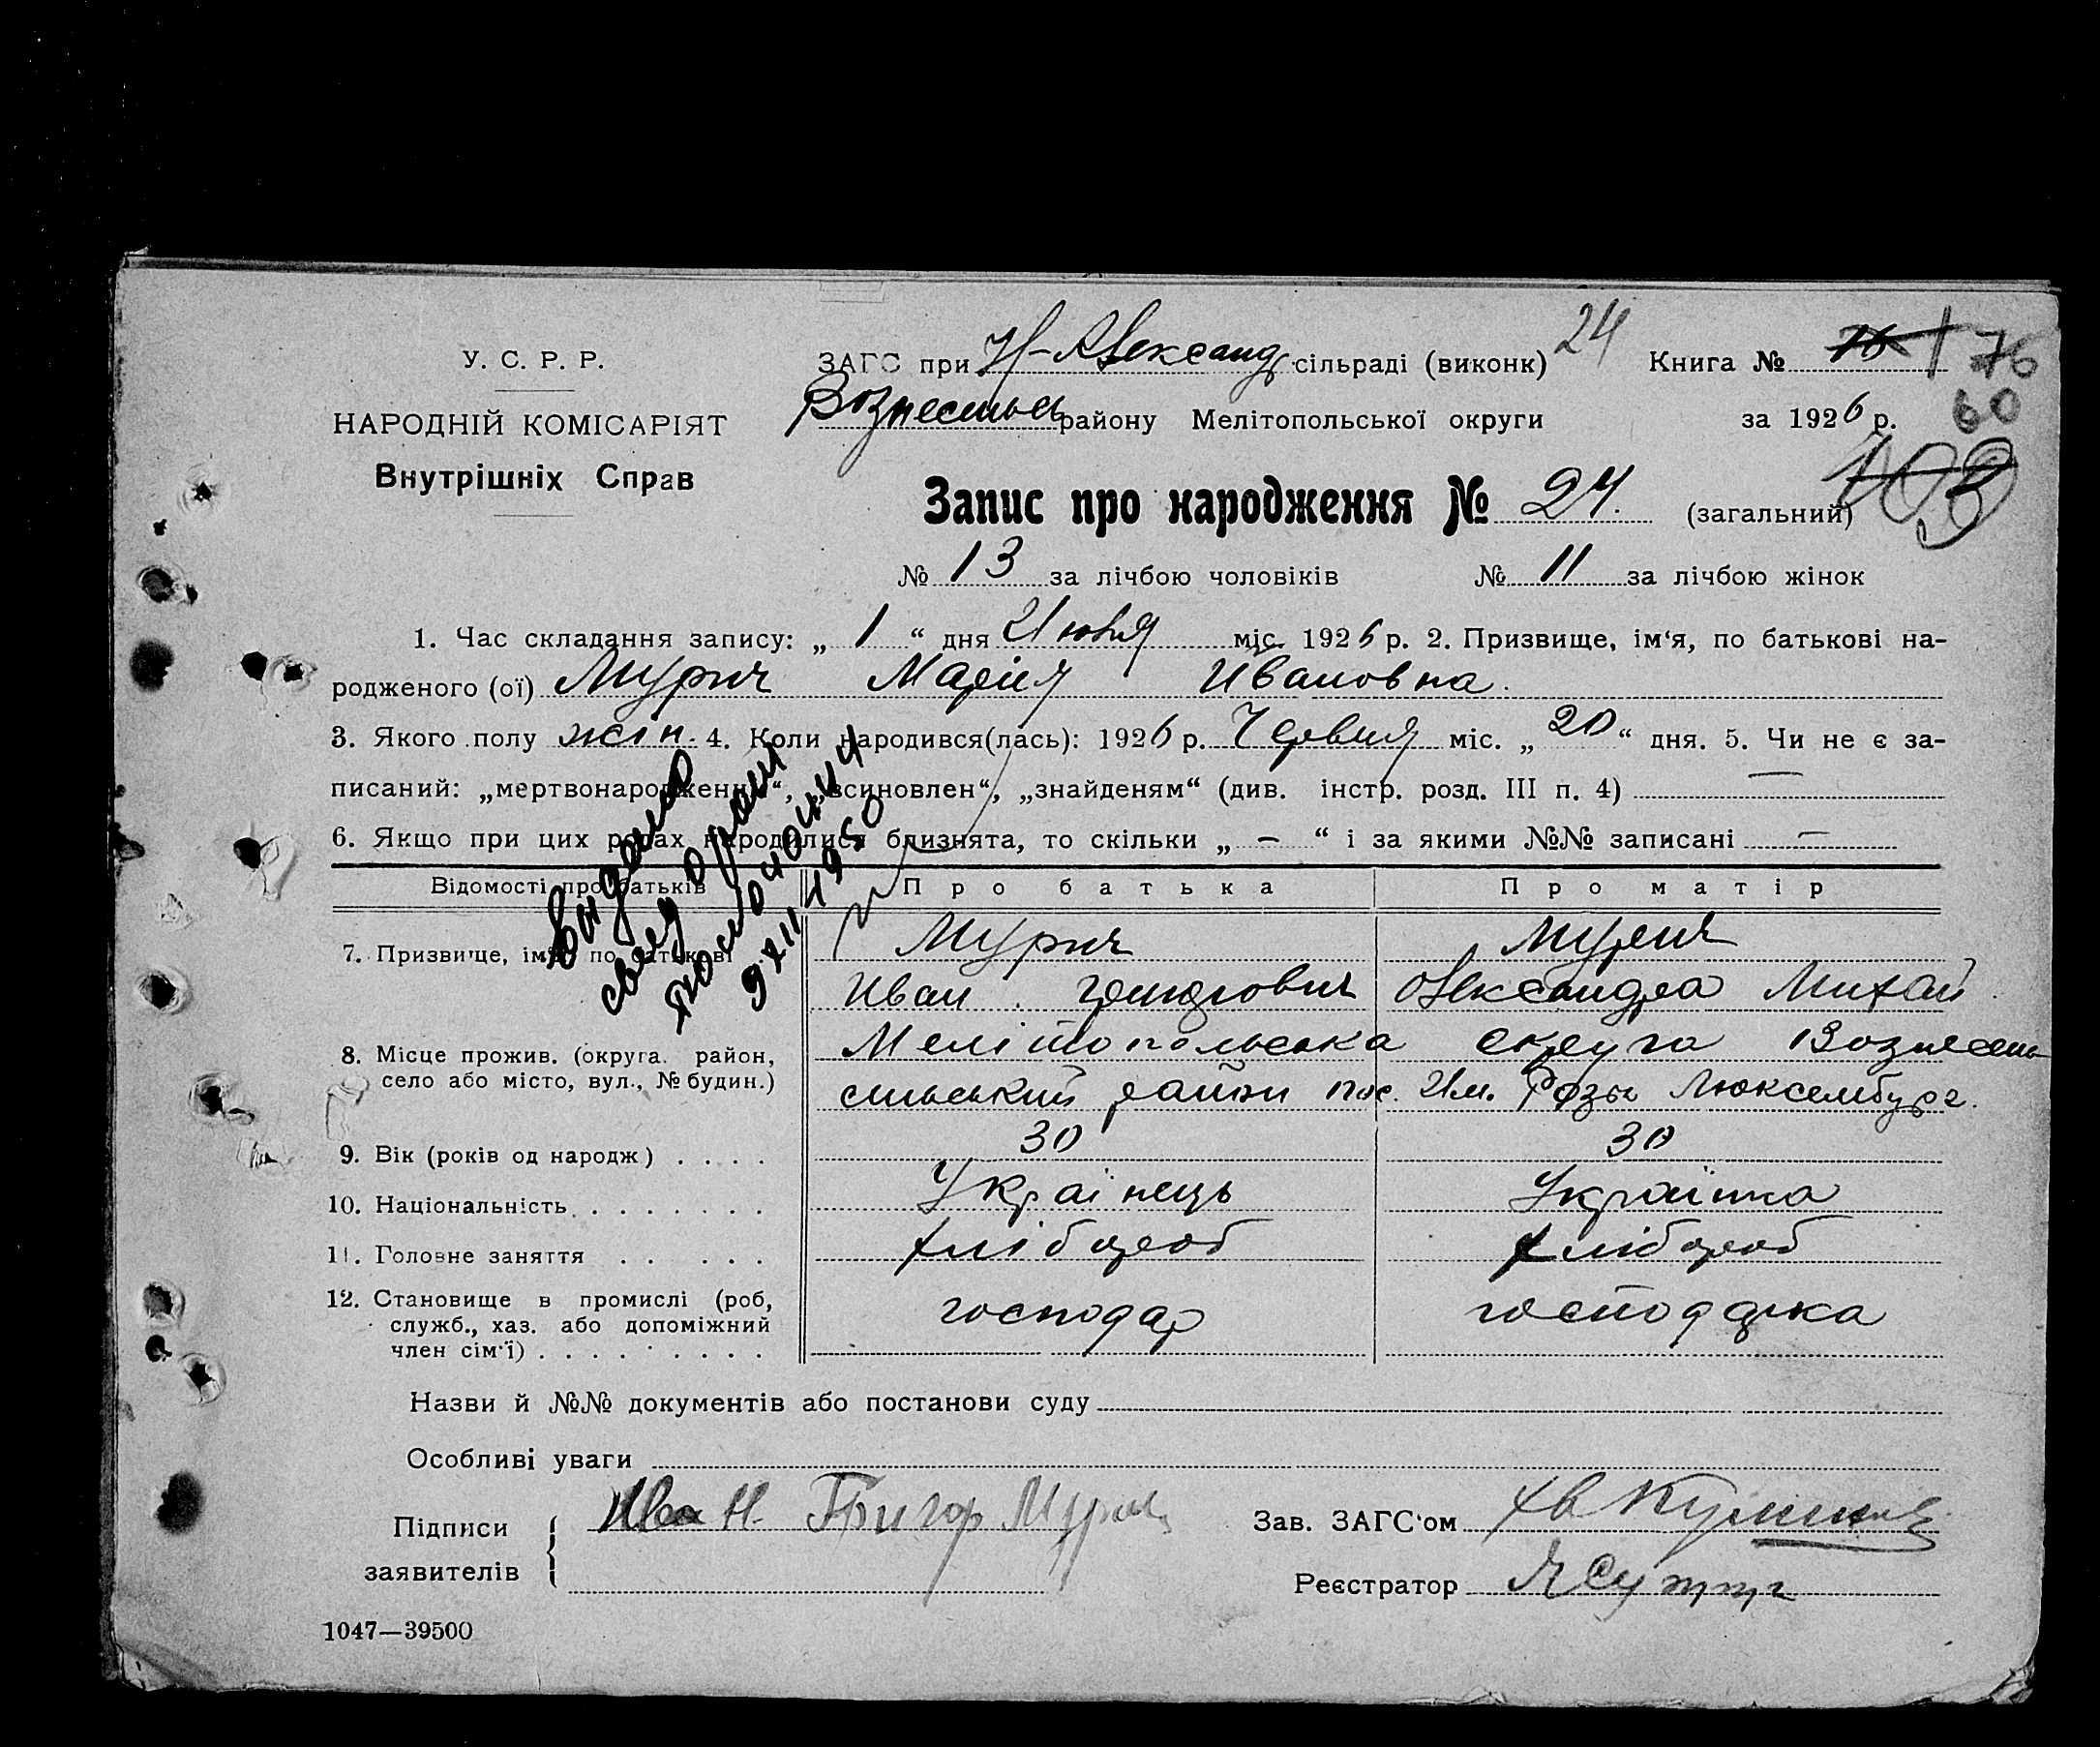 У. С. Р. Р.
НАРОДНІЙ КОМІСАРІЯТ
Внутрішніх Справ
ЗАГС при Н-Александр. сільраді (виконк) 24 Книга № 76 1 76
Вознесенськ району Мелітопольської округи за 1926 р. 60
Запис про народження № 24. (загальний)
№ 13 за лічбою чоловіків № 11 за лічбою жінок
1. Час складання запису: „ 1 “ дня Июля міс. 1926 р. 2. Призвище, ім‘я, по батькові на-
родженого (ої) Мурич Марія Ивановна.
3. Якого полу жін. 4. Коли народився(лась): 1926 р. Червня міс. „ 20 “ дня. 5. Чи не є за-
писаний: „мертвонароджений“, „всиновлен“, „знайденям“ (див. інстр. розд. III п. 4) —
6. Якщо при цих родах народилися близнята, то скільки „ – “ і за якими №№ записані —
Відомості про батьків Про батька Про матір
7. Призвище, ім‘я, по батькові Мурич Мурич
Иван Григорович Александра Михай
8. Місце прожив. (округа, район, село або місто, вул., № будин.) Мелітопольська округа Вознесен
сенський район пос. Им. Розы Люксембург.
9. Вік (років од народж) . . . . 30 30
10. Національність . . . . . . . . Українець Українка
11. Головне заняття . . . . . хлібороб хлібороб
12. Становище в промислі (роб, служб., хаз. або допоміжний член сім‘ї) . . . . . . . . . господар господарка
выдано
свид о рожд
повторный
9 XII 1950
Назви й №№ документів або постанови суду
Особливі уваги
Підписи заявителів Иван Григор Мурич
Зав. ЗАГС‘ом
Реєстратор
1047—39500